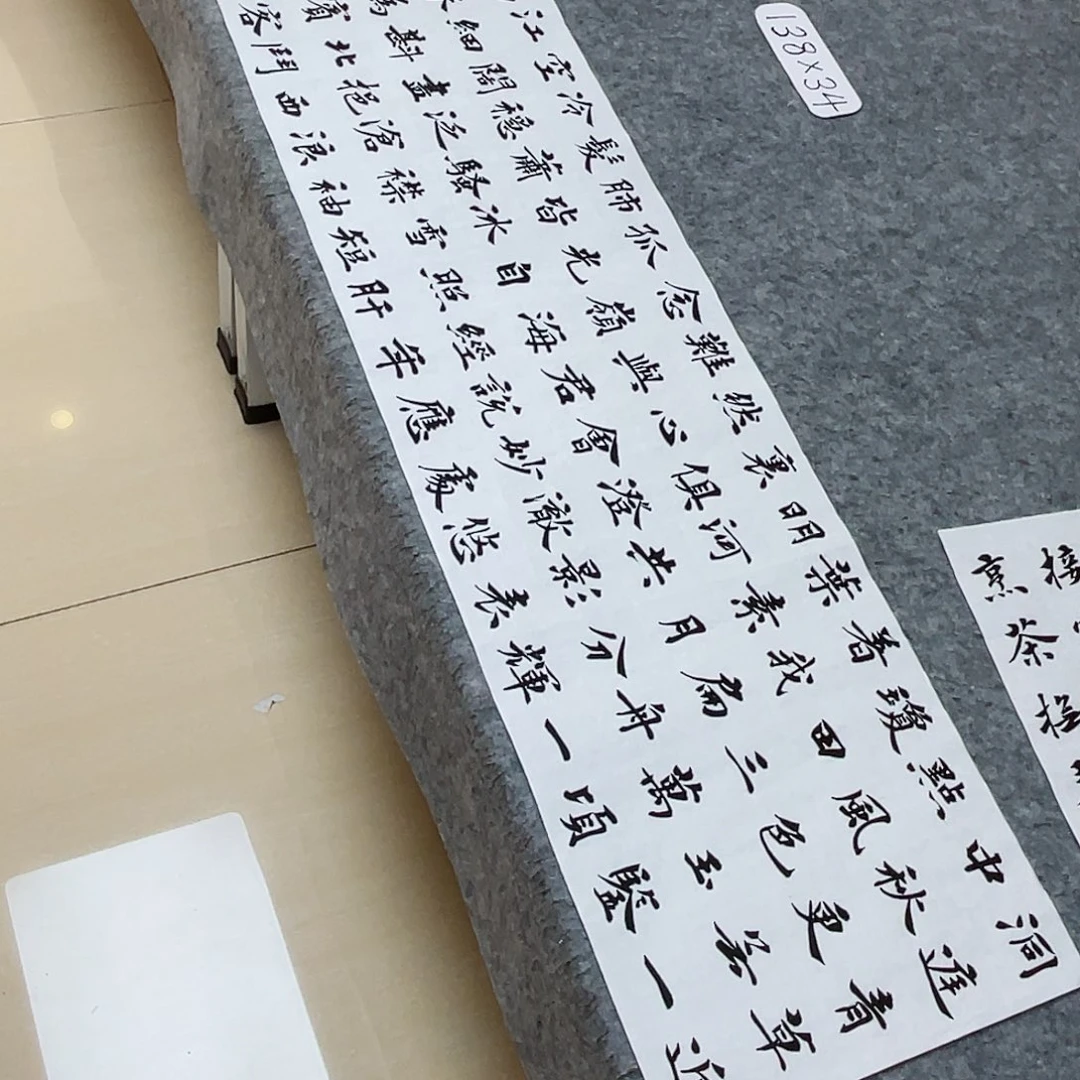 138×34
洞庭青草近
中秋更無一
點風色玉鑒
瓊田三萬頃
着我扁舟一
葉素月分輝
明河共影表
裏俱澄澈悠
然心會妙處
難與君說應
念嶺海經年
孤光自照肝
肺皆冰雪短
髮蕭騷襟袖
冷穩泛滄浪
空闊盡挹西
江細斟北鬥
為賓客